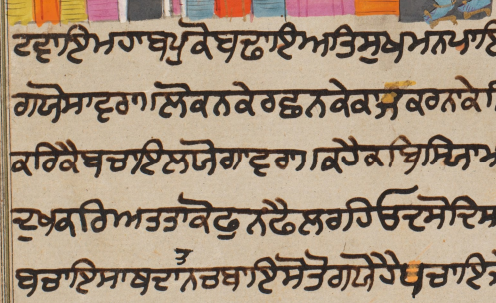 ਟਵਾਇਮਹਾਬਪੁਕੋਬਢਾਇਅਤਿਸੁਖਮਨਪਾਇ
ਗਯੋਸਾਵਰਾ॥ਲੋਕਨਕੇਰਛਨਕੇਕਾਜਕਰਨਾਕੇ
ਕਰਿਕੈਬਚਾਇਲਯੋਗਾਵਰਾ॥ਕਹੈਕਬਿਸਿਆਮ
ਦੁਖਕਰਿਅਤਤਾਕੋਢੁਨਢੈਲਰਹਿਓਦਸੋਦਿਸ
ਬਚਾਇਸਾਖਦਾਂਨਚਬਾਇਸੋਤੋਗਯੋਹੈਪਚਾਇ